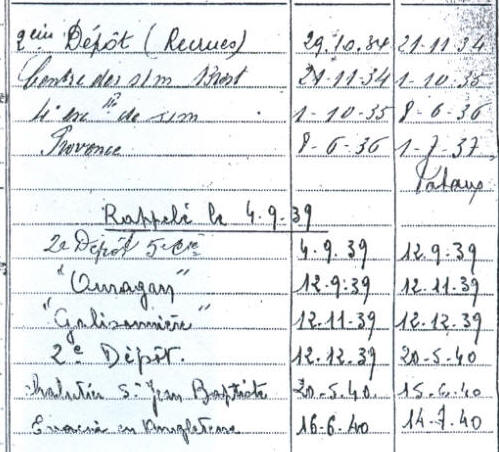 2ème Dépôt (Recrues) 29.10.34 21.11.34
Centre des s/m Brest 21-11-34 1-10-35
4e esclle de s/m 1-10-35 8-6-36
Provence 8-6-36 1-7-37
Rappelé le 4.9.39
2e Dépôt 5e Cie 4.9.39 12.9.39
"Ouragan" 12.9.39 12.11.39
"Galissonnière" 12.11.39 12.12.39
2e Dépôt. 12.12.39 20.5.40
Chalutier St Jean Baptiste 20.5.40 15.6.40
Evacué en Angleterre 16.6.40 14.7.40